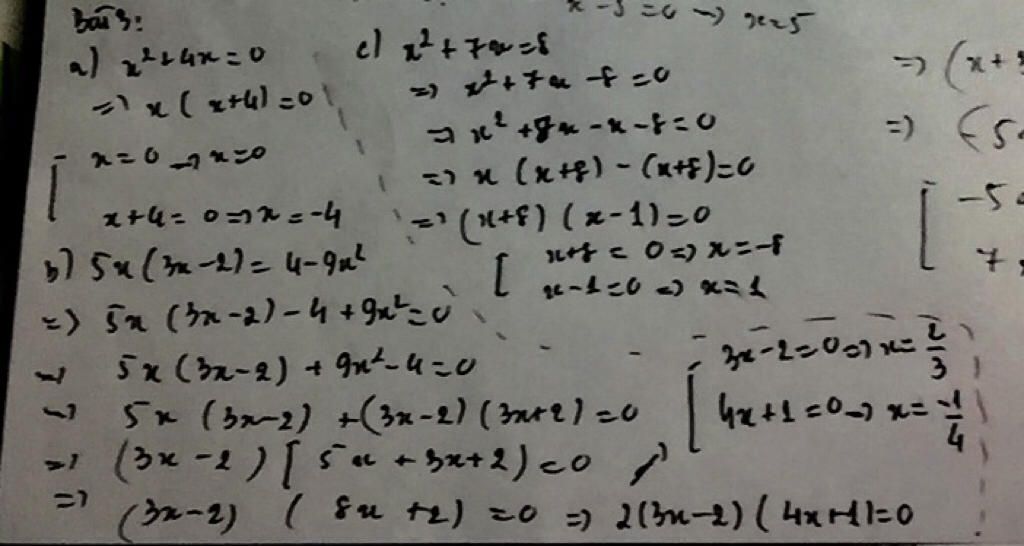 x - 5 = 0 → x = 5
Bài 3:
a) x² + 4x = 0
=> x ( x+4) = 0
[ x = 0 → x = 0
x + 4 = 0 => x = -4
b) 5x (3x - 2) = 4 - 9x²
=> 5x (3x - 2) - 4 + 9x² = 0
→ 5x (3x - 2) + 9x² - 4 = 0
→ 5x (3x - 2) + (3x - 2) (3x + 2) = 0
=> (3x - 2) [ 5x + 3x + 2) = 0
=> (3x - 2) ( 8x + 2) = 0 => 2(3x - 2) ( 4x + 1) = 0
[ 3x - 2 = 0 => x = 2/3
4x + 1 = 0 → x = -1/4
c) x² + 7x = 8
=> x² + 7x - 8 = 0
=> x² + 8x - x - 8 = 0
=> x (x + 8) - (x + 8) = 0
=> (x + 8) (x - 1) = 0
[ x + 8 = 0 => x = -8
x - 1 = 0 => x = 1
=> (x +
=> (-5
[ -5
7